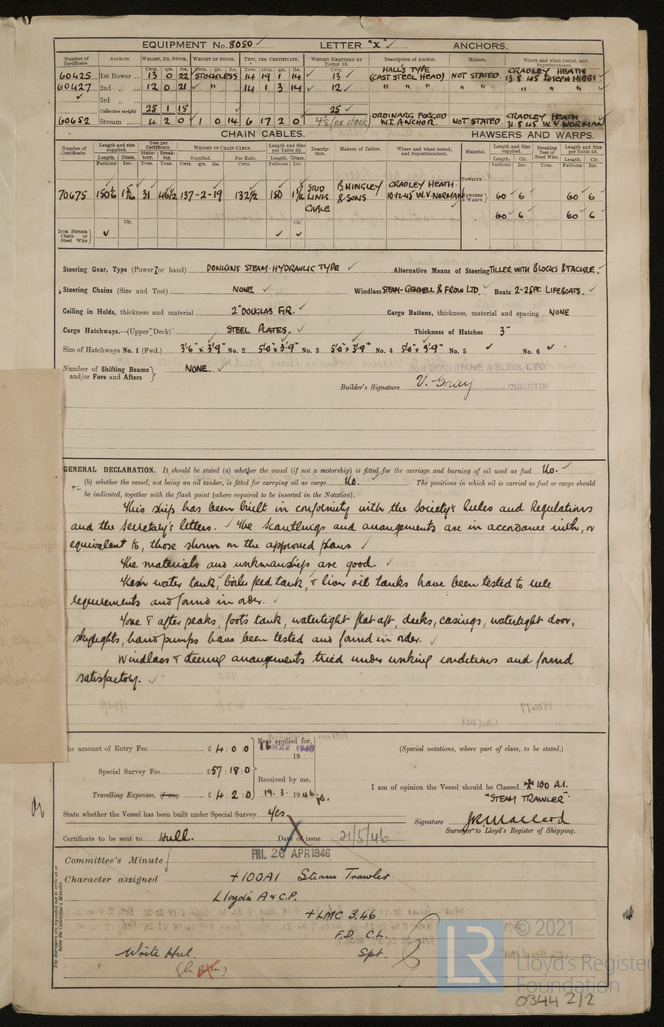 EQUIPMENT No. 8050 ✓ LETTER "X" ✓ ANCHORS.
Number of Certificate. Anchors. WEIGHT, EX. STOCK. WEIGHT OF STOCK. TEST, PER CERTIFICATE. WEIGHT REQUIRED BY TABLE 53. Description of Anchor. Makers. Where and when tested, and Superintendent.
60425 1st Bower 13 0 22 STOCKLESS 14 19 1 14 13 ✓ HALL'S TYPE (CAST STEEL HEAD) NOT STATED. CRADLEY HEATH
60427 2nd „ 12 0 21 ✓ " 14 1 3 14 12 ✓ " " " " "
3rd „
Collective weight 25 1 15 25 ✓
60652 Stream 4 2 0 1 0 14 6 17 2 0 ORDINARY FORGED W.I. ANCHOR. NOT STATED. CRADLEY HEATH 31.8.45 W.V. NORMAN
CHAIN CABLES. HAWSERS AND WARPS.
70675 31 46½ 137-2-19 132½ 150 STUD LINK CABLE B. HINGLEY & SONS CRADLEY HEATH 10.12.45 W.V. NORMAN 60 6 60 6
60 6 60 6
Iron Stream Chain or Steel Wire ✓ ✓ ✓
Steering Gear, Type (Power or hand) DONKINS STEAM-HYDRAULIC TYPE ✓ Alternative Means of Steering TILLER WITH BLOCKS & TACKLE. ✓
Steering Chains (Size and Test) NONE ✓ Windlass STEAM-GEMMELL & FROW LTD. ✓ Boats 2-25FT. LIFEBOATS. ✓
Ceiling in Holds, thickness and material 2" DOUGLAS FIR. Cargo Battens, thickness, material and spacing NONE
Cargo Hatchways.—(Upper Deck) STEEL PLATES. ✓ Thickness of Hatches 3"
Size of Hatchways No. 1 (Fwd.) 3'6" x 3'9" No. 2 5'0 x 3'9" No. 3 5'0 x 3'9" No. 4 5'0 x 3'9" No. 5 ✓ No. 6 ✓
Number of Shifting Beams and/or Fore and Afters NONE. ✓
Builder's Signature V. Gray DIRECTOR
GENERAL DECLARATION. It should be stated (a) whether the vessel (if not a motorship) is fitted for the carriage and burning of oil used as fuel No. ✓
(b) whether the vessel, not being an oil tanker, is fitted for carrying oil as cargo No. The positions in which oil is carried as fuel or cargo should
be indicated, together with the flash point (where required to be inserted in the Notation).
This ship has been built in conformity with the Society's Rules and Regulations
and the Secretary's letters. ✓ The scantlings and arrangements are in accordance with, or
equivalent to, those shown on the approved plans ✓
The materials and workmanship are good. ✓
Fresh water tank, boiler feed tank, & liver oil tanks have been tested to rule
requirements and found in order. ✓
Fore & after peaks, foots tank, watertight flat aft, decks, casings, watertight door,
skylights, hand pumps have been tested and found in order. ✓
Windlass & steering arrangements tried under working conditions and found
satisfactory. ✓
The amount of Entry Fee £ 4 : 0 : 0 Fees applied for, 19
Special Survey Fee £57 : 18 : 0 Received by me,
Travelling Expenses, £ 4 : 2 : 0 19. 3. 1946
(Special notations, where part of class, to be stated.)
I am of opinion the Vessel should be Classed +100 A.1.
"STEAM TRAWLER"
State whether the Vessel has been built under Special Survey Yes
Signature
Surveyor to Lloyd's Register of Shipping.
Certificate to be sent to Hull. Date of issue 21/5/46
Committee's Minute FRI. 26 APR 1946
Character assigned +100A1 Steam Trawler
Lloyd's A & C.P.
+LMC 3,46
F.D. C.L.
Write Hull Spt.
© 2021
LR Lloyd's Register
Foundation
0344 2/2